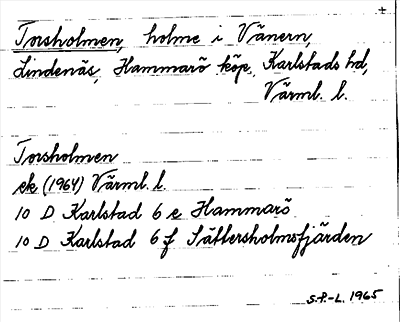 +
Torsholmen, holme i Vänern,
Lindenäs, Hammarö köp, Karlstads hd,
Värml. l.
Torsholmen
ek (1964) Värml. l.
10 D Karlstad 6 e Hammarö
10 D Karlstad 6 f Sättersholmsfjärden
S.P.-L. 1965